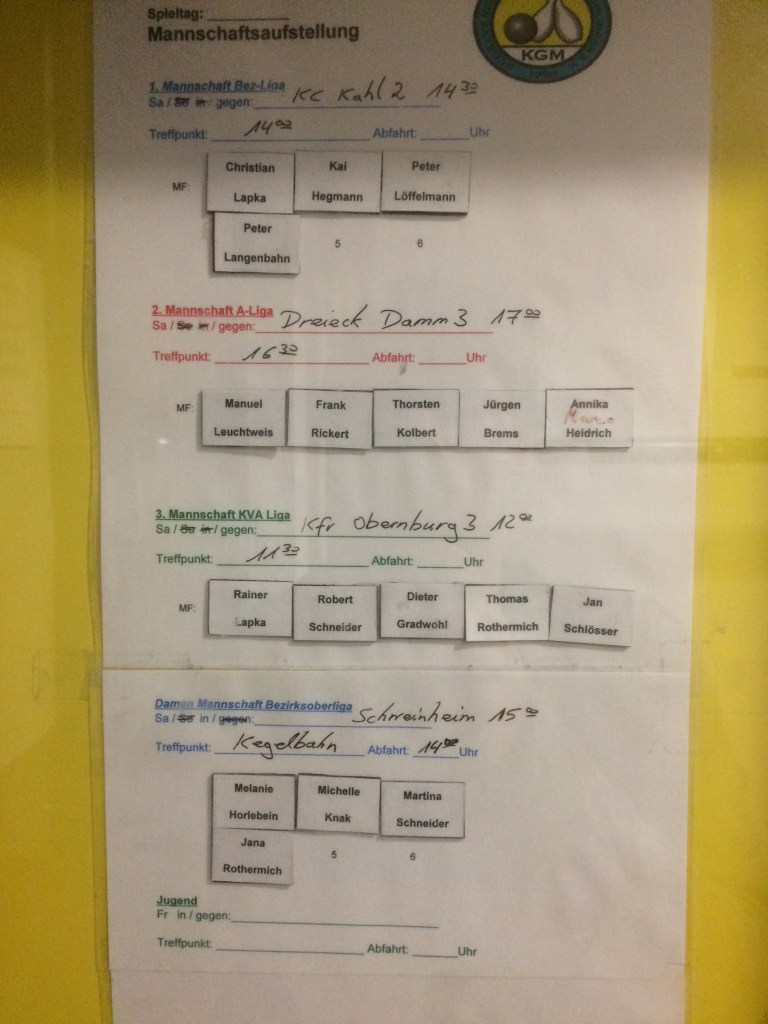 Spieltag:
Mannschaftsaufstellung
KGM
1. Mannschaft Bez-Liga
Sa / So in / gegen: KC Kahl 2 14 30
Treffpunkt: 14 00 Abfahrt: Uhr
MF: Christian Lapka Kai Hegmann Peter Löffelmann
Peter Langenbahn 5 6
2. Mannschaft A-Liga
Sa / So in / gegen: Dreieck Damm 3 17 00
Treffpunkt: 16 30 Abfahrt: Uhr
MF: Manuel Leuchtweis Frank Rickert Thorsten Kolbert Jürgen Brems Annika Heidrich
3. Mannschaft KVA Liga
Sa / So in / gegen: Kfr Obernburg 3 12 00
Treffpunkt: 11 30 Abfahrt: Uhr
MF: Rainer Lapka Robert Schneider Dieter Gradwohl Thomas Rothermich Jan Schlösser
Damen Mannschaft Bezirksoberliga
Sa / So in / gegen: Schweinheim 15 00
Treffpunkt: Kegelbahn Abfahrt: 14 00 Uhr
Melanie Horlebein Michelle Knak Martina Schneider
Jana Rothermich 5 6
Jugend
Fr in / gegen:
Treffpunkt: Abfahrt: Uhr